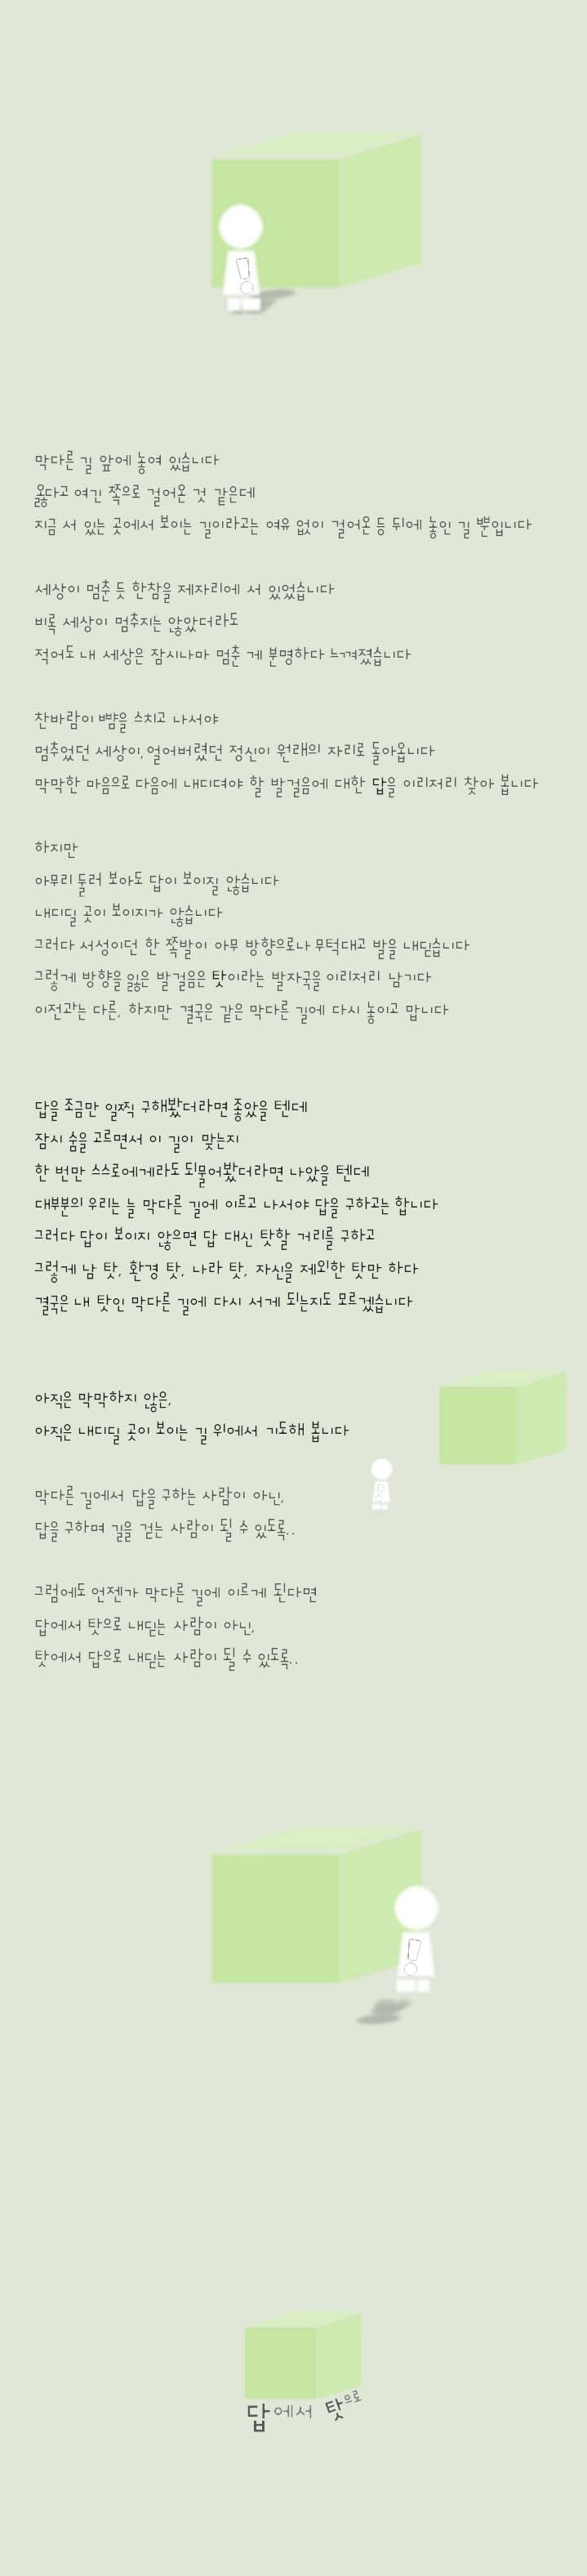 막다른 길 앞에 놓여 있습니다
옳다고 여긴 쪽으로 걸어온 것 같은데
지금 서 있는 곳에서 보이는 길이라고는 여유 없이 걸어온 등 뒤에 놓인 길 뿐입니다
세상이 멈춘 듯 한참을 제자리에 서 있었습니다
비록 세상이 멈추지는 않았더라도
적어도 내 세상은 잠시나마 멈춘 게 분명하다 느껴졌습니다
찬바람이 뺨을 스치고 나서야
멈추었던 세상이, 얼어버렸던 정신이 원래의 자리로 돌아옵니다
막막한 마음으로 다음에 내디뎌야 할 발걸음에 대한 답을 이리저리 찾아 봅니다
하지만
아무리 둘러 보아도 답이 보이질 않습니다
내디딜 곳이 보이지가 않습니다
그러다 서성이던 한 쪽발이 아무 방향으로나 무턱대고 발을 내딛습니다
그렇게 방향을 잃은 발걸음은 탓이라는 발자국을 이리저리 남기다
이전과는 다른, 하지만 결국은 같은 막다른 길에 다시 놓이고 맙니다
답을 조금만 일찍 구해봤더라면 좋았을 텐데
잠시 숨을 고르면서 이 길이 맞는지
한 번만 스스로에게라도 되물어봤더라면 나았을 텐데
대부분의 우리는 늘 막다른 길에 이르고 나서야 답을 구하고는 합니다
그러다 답이 보이지 않으면 답 대신 탓할 거리를 구하고
그렇게 남 탓, 환경 탓, 나라 탓, 자신을 제외한 탓만 하다
결국은 내 탓인 막다른 길에 다시 서게 되는지도 모르겠습니다
아직은 막막하지 않은,
아직은 내디딜 곳이 보이는 길 위에서 기도해 봅니다
막다른 길에서 답을 구하는 사람이 아닌,
답을 구하며 길을 걷는 사람이 될 수 있도록..
그럼에도 언젠가 막다른 길에 이르게 된다면
답에서 탓으로 내딛는 사람이 아닌,
탓에서 답으로 내딛는 사람이 될 수 있도록..
답에서 탓으로